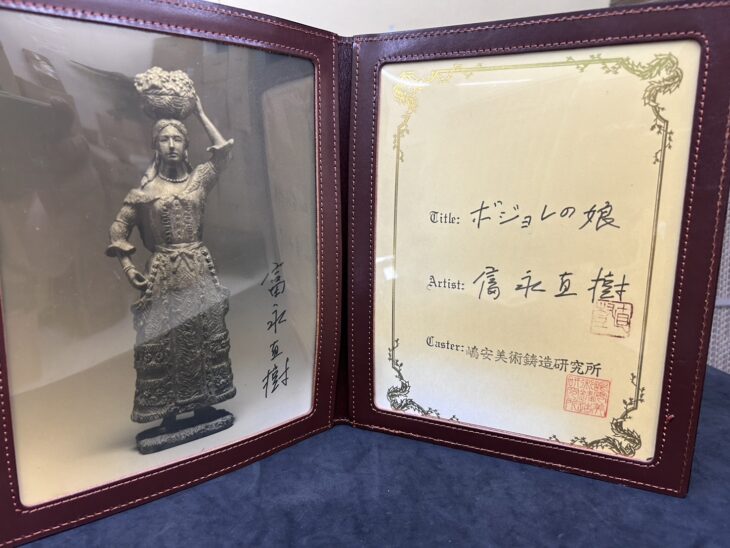 富永直樹
Title: ボジョレの娘
Artist: 富永直樹
Caster: 嶋安美術鋳造研究所